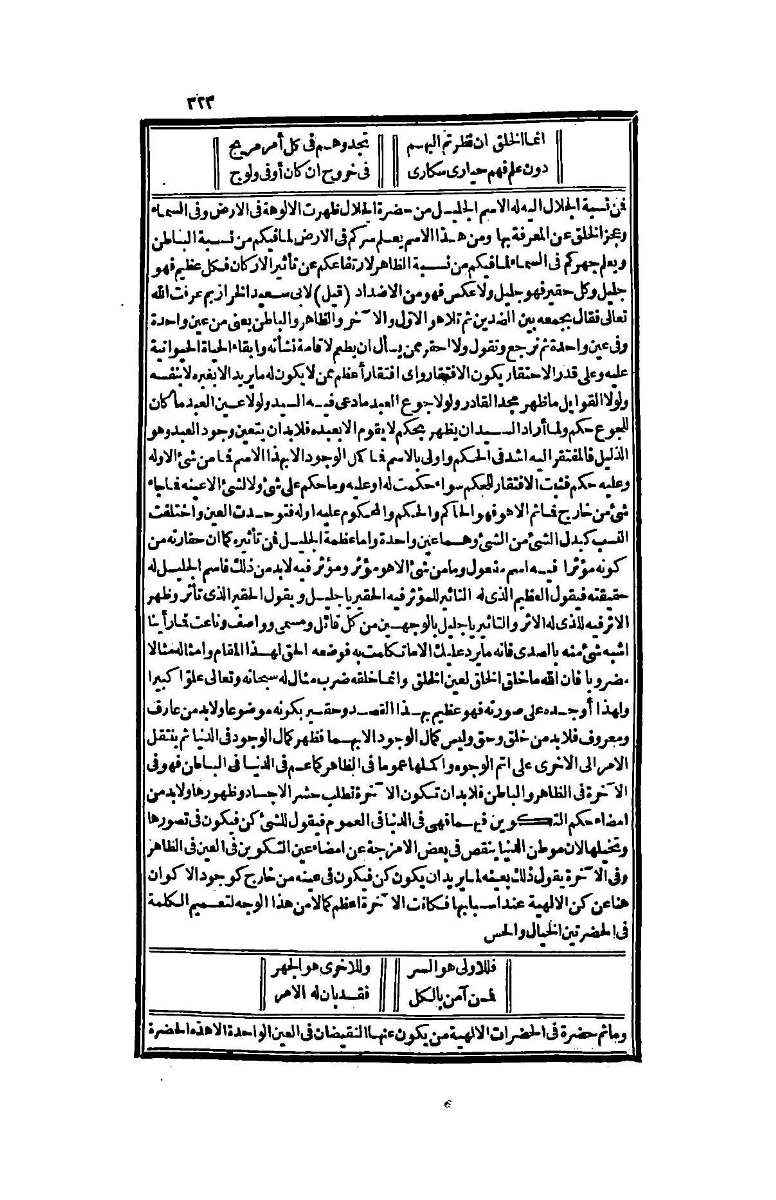 ٣٢٣
انما الخلق ان نظرتم اليهم تجدوهم فى كل أمر مريج
دون علم فهم حيارى سكارى فى خروج ان كان أو فى ولوج
فمن نسبة الجلال اليه له الاسم الجليل من حضرة الجلال ظهرت الالوهة فى الارض وفى السماء
وعجز الخلق عن المعرفة بها ومن هذا الاسم يعلم سركم فى الارض لمافيكم من نسبة الباطن
ويعلم جهركم فى السماء لمافيكم من نسبة الظاهر لارتفاعكم عن تأثير الاركان فكل عظيم فهو
جليل وكل حقير فهو جليل ولا عكس فهو من الاضداد (قيل) لابى سعيد الخراز بم عرفت الله
تعالى فقال بجمعه بين الضدين ثم تلا هو الاول والآخر والظاهر والباطن يعنى من عين واحدة
وفى عين واحدة ثم نرجع ونقول ولا احقر ممن يسأل ان يطعم لاقامة نشأته وابقاء الحياة الحيوانية
عليه وعلى قدر الاحتقار يكون الافتقار واى افتقار أعظم ممن لا يكون له ما يريد الا بغيره لا بنفسه
ولولا القوابل ماظهر مجد القادر ولولا جوع العبد مادعى فيه السيد ولولا عين العبد ماكان
للجوع حكم ولما أراد السيد ان يظهر بحكم لا يقوم الا بعبده فلابد ان يتعين وجود العبد وهو
الذليل فالمفتقر اليه اشد فى الحكم واولى بالاسم فما كمل الوجود الا بهذا الاسم فما من شئ الا وله
وعليه حكم فثبت الافتقار للحكم سواء حكمت له او عليه وما حكم على شئ ولا لشئ الا عينه فما جاء
شئ من خارج فما ثم الا هو فهو الحاكم والحكم والمحكوم عليه اوله فتوحدت العين واختلفت
النسب كبدل الشئ من الشئ وهما عين واحدة واما عظمة الجليل فمن تأثيره كما ان حقارته من
كونه مؤثرا فيه اسم مفعول وما من شئ الا هو مؤثر ومؤثر فيه لابد من ذلك فاسم الجليل له
حقيقته فيقول العظيم الذى له التاثير للمؤثر فيه الحقير يا جليل ويقول الحقير الذى تأثر وظهر
الاثر فيه للذى له الاثر والتاثير يا جليل بالوجهين من كل قائل ومسمى وواصف وناعت فما رأينا
اشبه شئ منه بالصدى فانه مايرد عليك الا ماتكلمت به فوضعه الحق لهذا المقام وامثاله مثالا
مضروبا فان الله ماخلق الخلق لعين الخلق وانما خلقه ضرب مثال له سبحانه وتعالى علوّا كبيرا
ولهذا أوجده على صورته فهو عظيم بهذا القصد وحقير بكونه موضوعا ولابد من عارف
ومعروف فلابد من خلق وحق وليس كمال الوجود الا بهما فظهر كمال الوجود فى الدنيا ثم ينتقل
الامر الى الاخرى على اتم الوجوه واكملها عموما فى الظاهر كماعم فى الدنيا فى الباطن فهو فى
الآخرة فى الظاهر والباطن فلابد ان تكون الآخرة تطلب حشر الاجساد وظهورها ولابد من
امضاء حكم التكوين فيهما فهى فى الدنيا فى العموم فيقول للشئ كن فيكون فى تصورها
وتخيلها لان موطن الدنيا ينقص فى بعض الامزجة عن امضاء عين التكوين فى العين فى الظاهر
وفى الآخرة يقول ذلك بعينه لما يريد ان يكون كن فيكون فى عينه من خارج كوجود الاكوان
هنا عن كن الالهية عند اسبابها فكانت الآخرة اعظم كمالا من هذا الوجه لتعميم الكلمة
فى الحضرتين الخيال والحس
فللاولى هو السر وللاخرى هو الجهر
فمن آمن بالكل فقد بان له الامر
وماثم حضرة فى الحضرات الالهية من يكون عنها النقيضان فى العين الواحدة الا هذه الحضرة